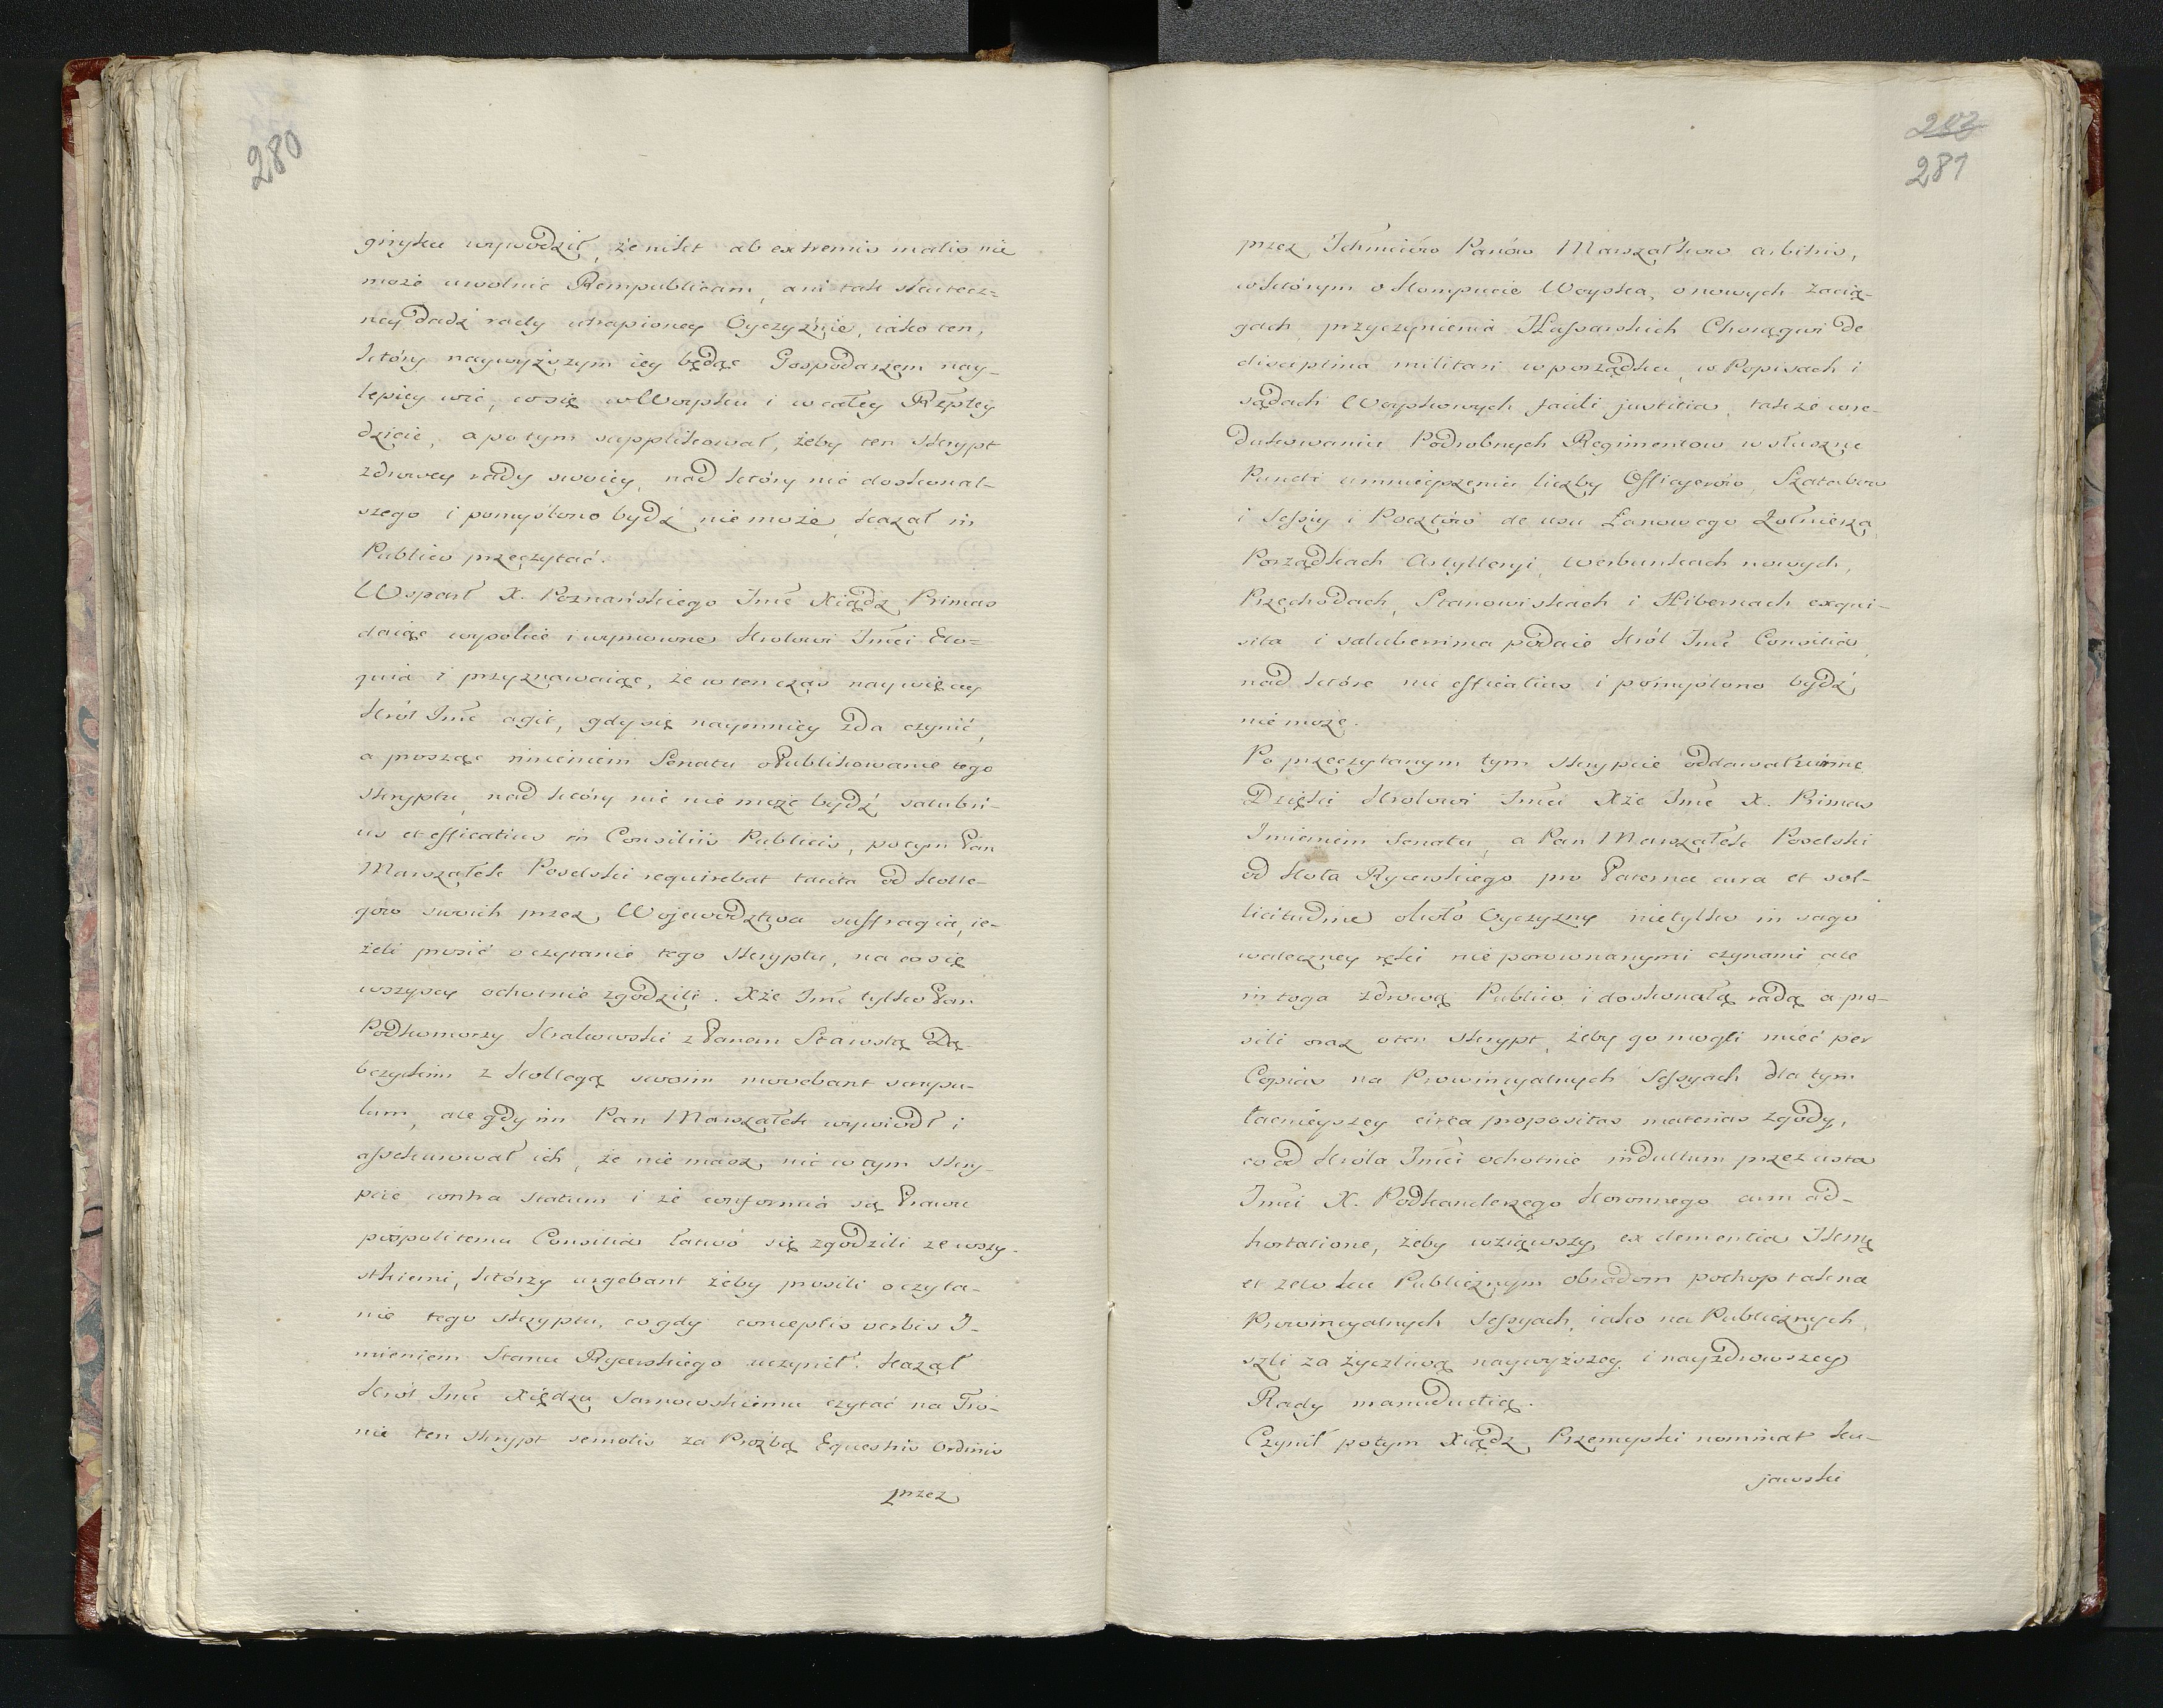 280
gnyteu wywodził, że nikt ab extremis malis nie
może uwolnić Rempublicam, ani tak skutecz=
ney dadź rady utrapioney Oyczyźnie, iako ten,
który naywyższym iey będąc Gospodarzem nay-
lepiey wie, co się w Woysku i w całey Rzpltey
dzieie, a potym supplikował, żeby ten skrypt
zdrowey rady swoiey, nad który nic doskonal-
szego i pomyślono bydź nie może, kazał in
Publico przeczytać.
Wsparł X. Poznańskiego Jmć Xiądz Primas
daiąc wysokie i wymowne Krolowi Jmći Elo=
quia i przyznawaiąc, że w ten czas naywięcey
Król Jmć agit, gdy się naymniey zda czynić,
a prosząc imieniem Senatu o Publikowanie tego
skryptu, nad który nic nie może bydź salubri-
us et efficatius in Consiliis Publicis, potym Pan
Marszałek Poselski requirebat tacita od Kolle-
gow swoich przez Wojewodztwa suffragia, ie-
żeli prosić o czytanie tego skryptu, na co się
wszyscy ochotnie zgodzili. Xże Jmć tylko Pan
Podkomorzy Krakowski z Panem Stawstą Dą-
bczyskim z Kollegą swoim movebant scrupu-
lum, ale gdy im Pan Marszałek wywiodł i
assekurował ich, że nie masz nic w tym skry-
pcie contra statum i że conformia są Prawu
pospolitemu Consilia łatwo się zgodzili ze wszy-
stkiemi, którzy urgebant żeby prosili o czyta-
nie tego skryptu, co gdy conceptis verbis I-
mieniem Stanu Rycerskiego uczynił. Kazał
Król Jmć Xiędzu Sarnowskiemu czytać na Tro-
nie ten skrypt semotis za Prożbą Equestris Ordinis
przez
281
przez Ichmćiow Panów Marszałkow arbitris,
w którym o Kompucie Woyska, o nowych zacią-
gach, przyczynienia Hussarskich Chorągwi De
disciplina militari w porządku, w Popisach i
sądach Woyskowych facili justitia, także o re-
dukowaniu Podrobnych Regimentow w słuszne
Punda umnieyszeniu liczby Officyerów, Sztabow
i Sessiy i Pocztów de usu Łanowego Żołnierza,
Porządkach Artylleryi, werbunkach nowych,
Przechodach, Stanowiskach i Hibernach exqui-
sita i saluberrima podaie Król Jmć Consilia,
nad które nic efficatius i pomyślono bydź
nie może.
Po przeczytanym tym skrypcie oddawał zimne
Dzięki Krolowi Jmći Xże Jmć X. Primas
Imieniem Senatu, a Pan Marszałek Poselski
od Koła Rycerskiego pro Paterna cura et sol-
licitudine około Oyczyzny nietylko in sago
waleczney ręki nieporownanymi czynami ale
in toga zdrową Publico i doskonałą radą a pro-
sili oraz o ten skrypt, żeby go mogli mieć per
Copias na Prowincyalnych Sessyach dla tym
łacnieyszey circa propositas materias zgody,
co od Króla Jmći ochotnie indultum przez usta
Jmći X. Podkanclerzego Koronnego cum ad-
hortatione, żeby wziąwszy ex clementia Keną
et zelo ku Publicznym obradom pochop tak na
Prowincyalnych Sessyach, iako na Publicznych
szli za życzliwą naywyższey i nayzdrowszey
Rady manuductią.
Czynił potym Xiądz Przemyski nominat Ku-
jawski